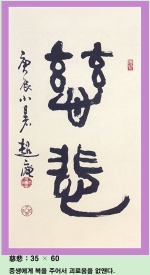 慈悲
庚辰小暑
超庵
慈悲 : 35 × 60
중생에게 복을 주어서 괴로움을 없앤다.